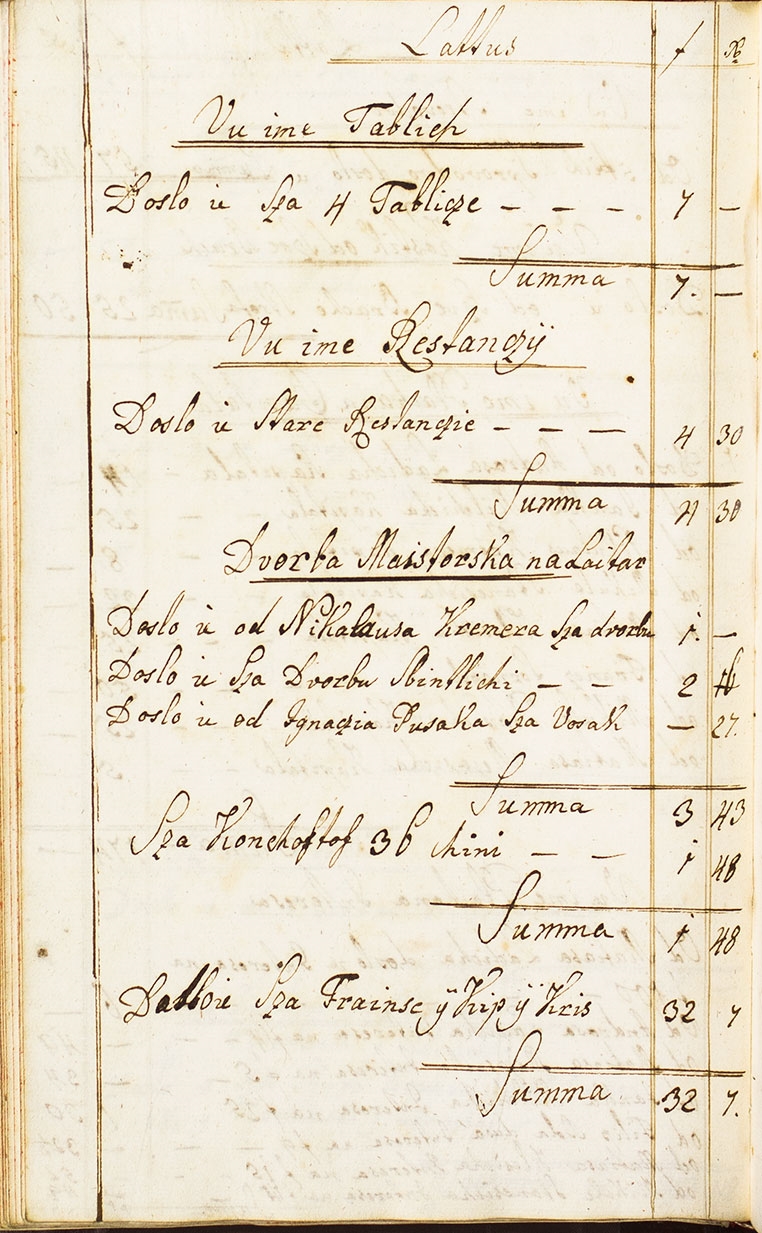 Lattus f xr
Vu ime Tablich
Doslo ie Sza 4 Tablicze – – – 7 –
Summa 7. –
Vu ime Restanczÿ
Doslo ie Stare Restanczie – – – 4 30
Summa 4 30
Dvorba Maistorska na Laitar
Doslo ie od Nikalausa Kremera Sza dvorbu 1. –
Doslo ie Sza Dvorbu Spintlichi – – 2 16
Doslo ie od Ignaczia Pusaka Sza Vosak – 27.
Summa 3 43
Sza 36 – – 1 48
Summa 1 48
Sza ÿ Kip ÿ Kris 32 7
Summa 32 7.